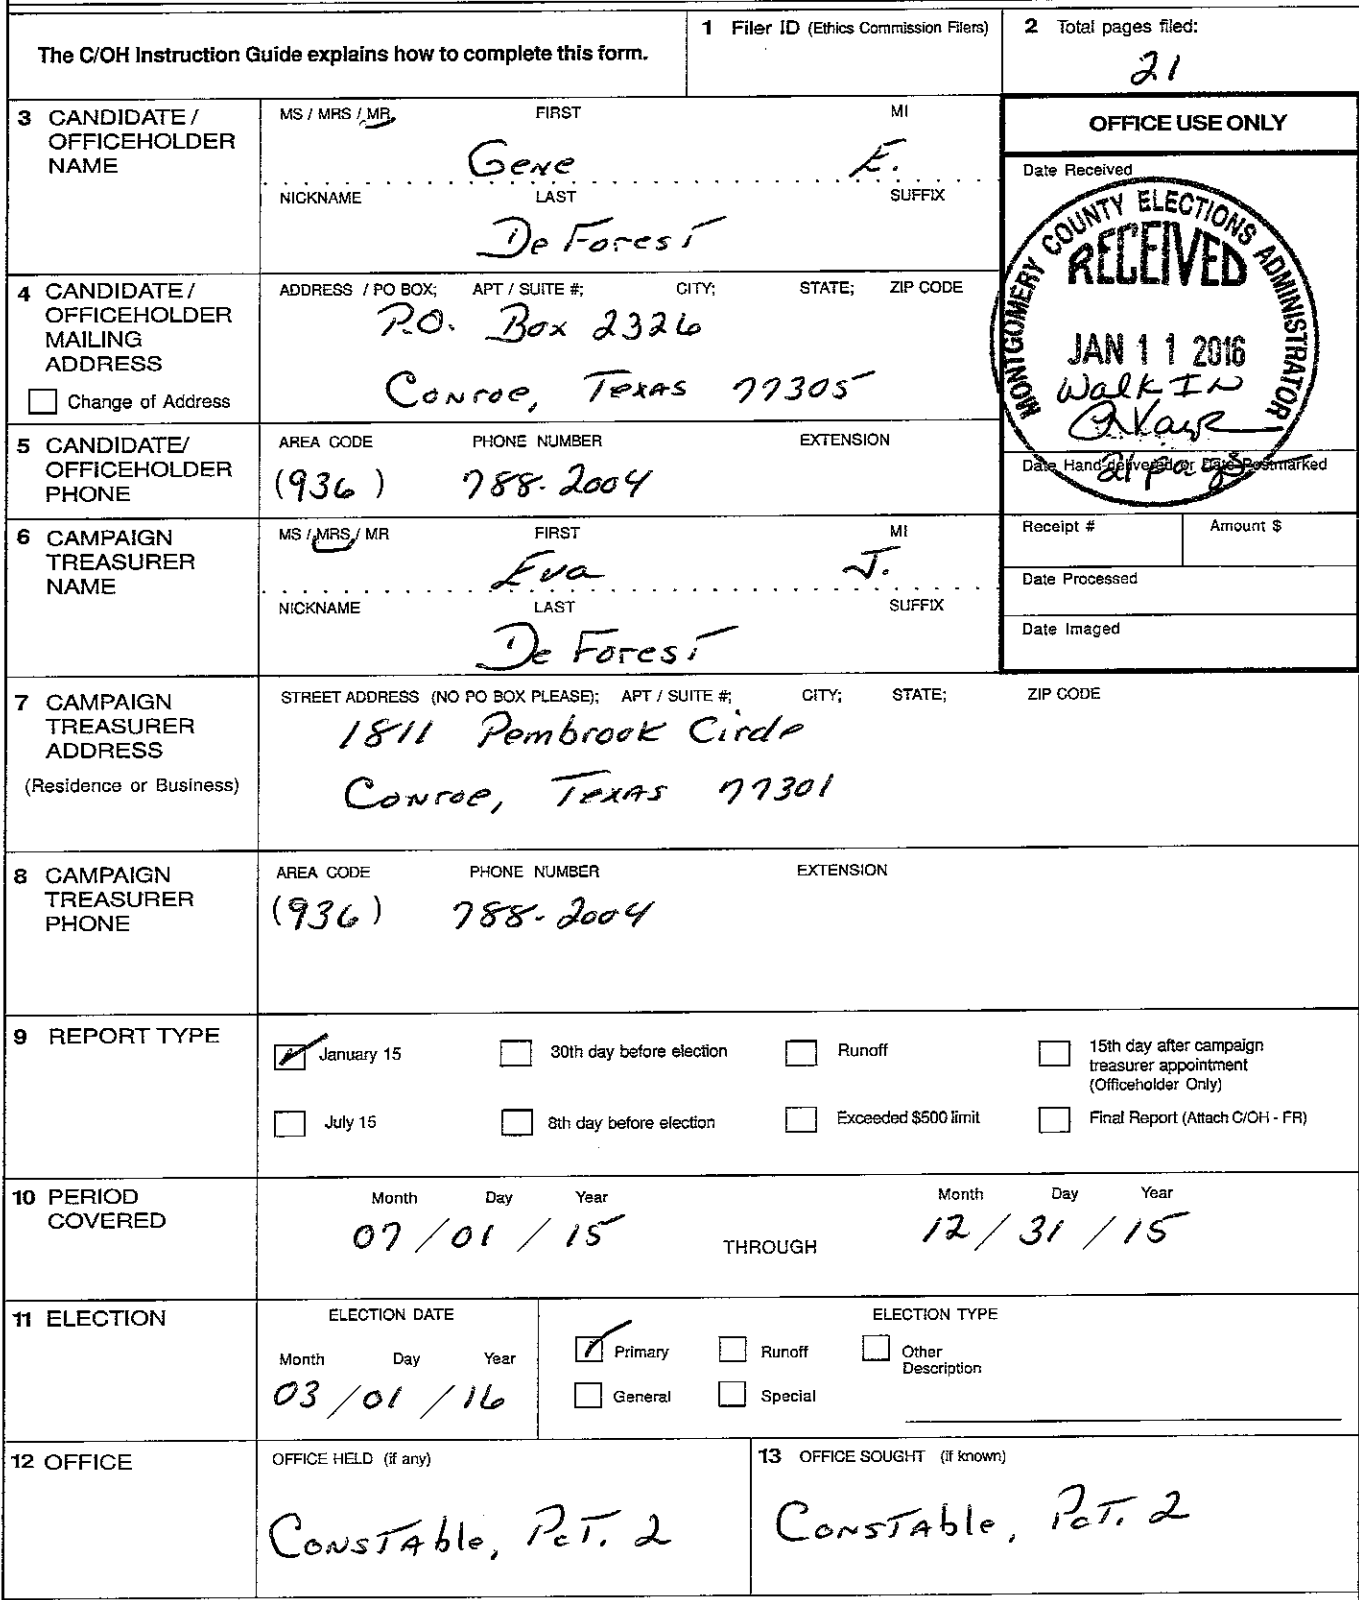 The C/OH Instruction Guide explains how to complete this form.
1 Filer ID (Ethics Commission Filers)
2 Total pages filed:
21
3 CANDIDATE / OFFICEHOLDER NAME
MS / MRS / MR
FIRST
MI
Gene E.
NICKNAME
LAST
SUFFIX
De Forest
OFFICE USE ONLY
Date Received
MONTGOMERY COUNTY ELECTIONS ADMINISTRATOR
RECEIVED
JAN 11 2016
Walk IN
21 pages
Date Hand-delivered or Date Postmarked
Receipt #
Amount $
Date Processed
Date Imaged
4 CANDIDATE / OFFICEHOLDER MAILING ADDRESS
Change of Address
ADDRESS / PO BOX; APT / SUITE #; CITY; STATE; ZIP CODE
P.O. Box 2326
Conroe, Texas 77305
5 CANDIDATE/ OFFICEHOLDER PHONE
AREA CODE PHONE NUMBER EXTENSION
(936) 788-2004
6 CAMPAIGN TREASURER NAME
MS / MRS / MR
FIRST
MI
Eva J.
NICKNAME
LAST
SUFFIX
De Forest
7 CAMPAIGN TREASURER ADDRESS
(Residence or Business)
STREET ADDRESS (NO PO BOX PLEASE); APT / SUITE #; CITY; STATE; ZIP CODE
1811 Pembrook Circle
Conroe, Texas 77301
8 CAMPAIGN TREASURER PHONE
AREA CODE PHONE NUMBER EXTENSION
(936) 788-2004
9 REPORT TYPE
January 15
30th day before election
Runoff
15th day after campaign treasurer appointment (Officeholder Only)
July 15
8th day before election
Exceeded $500 limit
Final Report (Attach C/OH - FR)
10 PERIOD COVERED
Month Day Year
07 / 01 / 15
THROUGH
Month Day Year
12 / 31 / 15
11 ELECTION
ELECTION DATE
Month Day Year
03 / 01 / 16
ELECTION TYPE
Primary
Runoff
Other Description
General
Special
12 OFFICE
OFFICE HELD (if any)
Constable, Pct. 2
13 OFFICE SOUGHT (if known)
Constable, Pct. 2